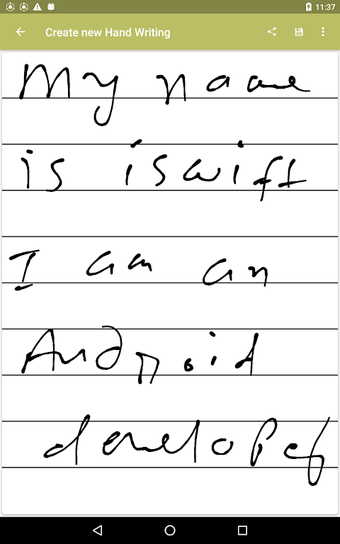 11:37
Create new Hand Writing
My name
is iswift
I am an
Android
developer